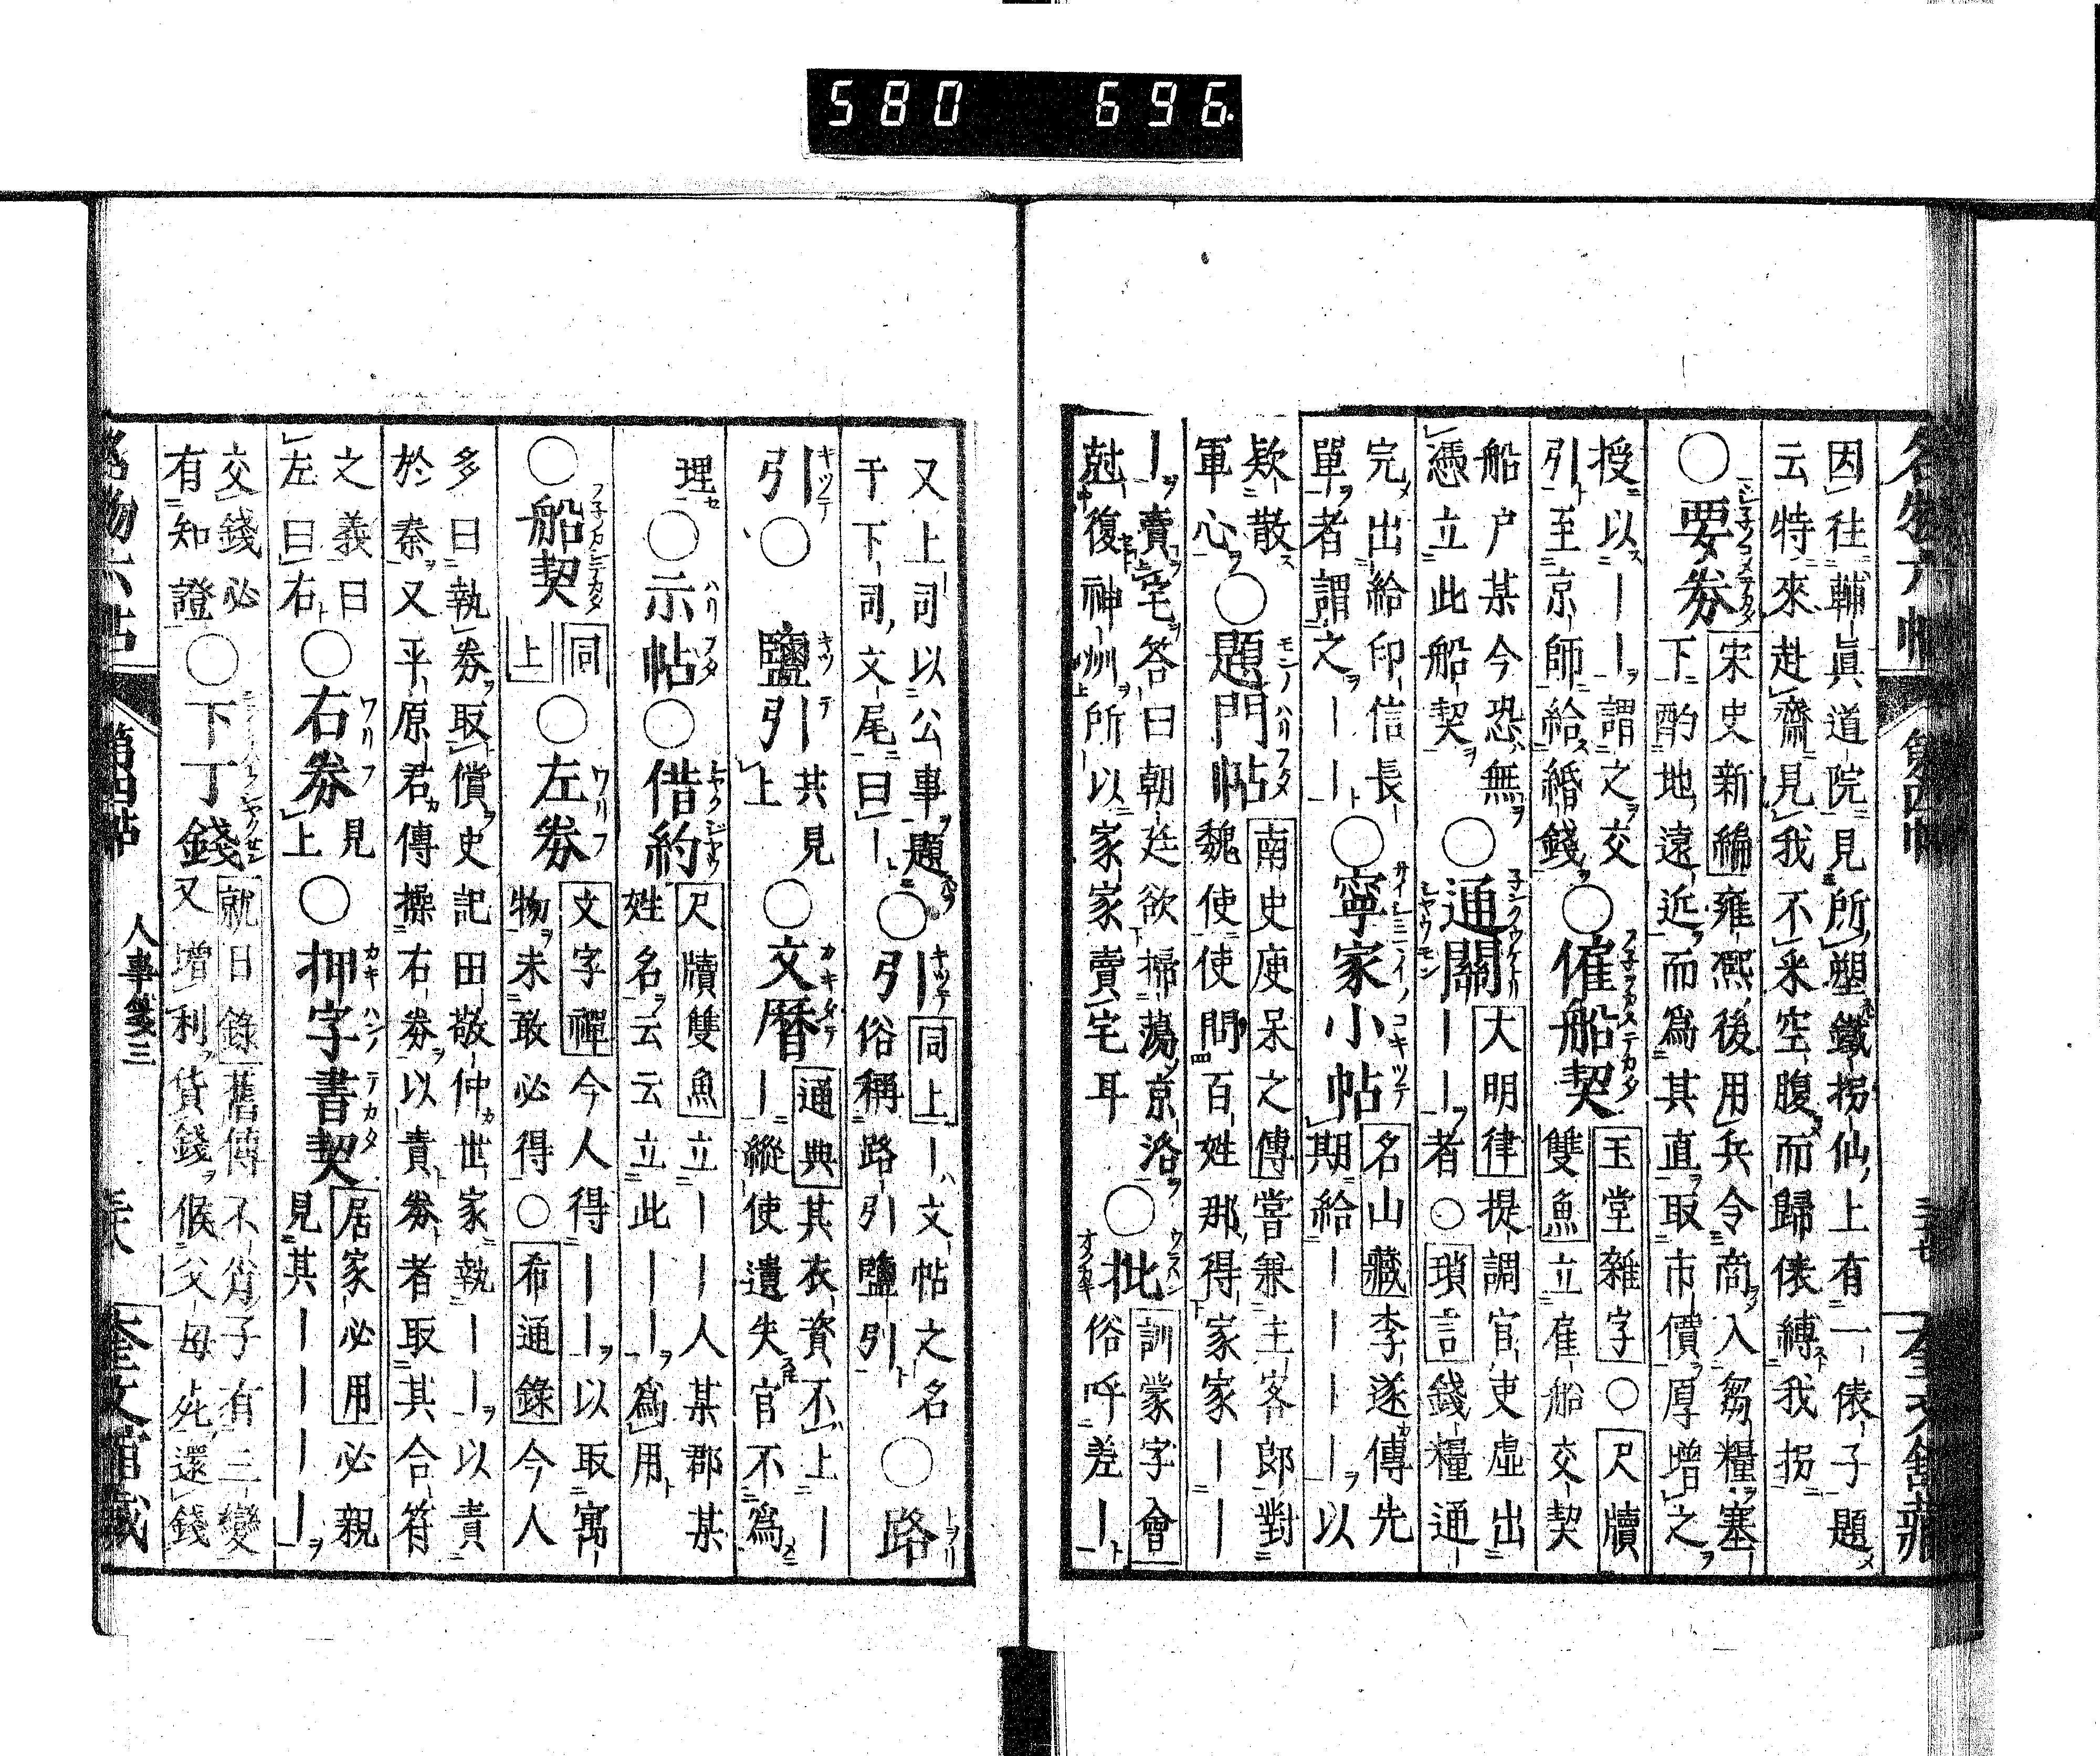 580 696
因往輔眞道院見所塑鐵拐仙上有一俵子題
云特來赴齋見我不釆空腹而歸俵縛我拐
○要券 宋史新編 雍熙後用兵令商入芻糧塞
下酌地遠近而爲其直取市價厚增之
授以丨丨謂之交
引至京師給緡錢○催船契 玉堂雜字○尺牘
雙魚 立雇船交契
船户某今恐無
憑立此船契○通關 大明律 提調官吏虛出
丨丨者○瑣言 錢糧通
完出給印信長
單者謂之丨丨○寧家小帖 名山藏 李遂傳先
期給丨丨丨丨以
欵散
軍心○題門帖 南史庾杲之傳 嘗兼主客郎對
魏使使問百姓那得家家丨丨
丨賣宅答曰朝廷欲掃蕩京洛
尅復神州所以家家賣宅耳○批 訓蒙字會
俗呼差丨
又上司以公事題
于下司文尾曰丨○引 同上 丨文帖之名
俗稱路引鹽引○路
引○鹽引 共見
上○文曆 通典 其衣資不上丨
丨縱使遺失官不爲
理○示帖○借約 尺牘雙魚 立丨丨人某郡某
姓名云云立此丨丨爲用
○船契 同上○左券 文字禪 今人得丨丨以取寓
物未敢必得○希通錄 今人
多曰執券取償史記田敬仲世家執丨丨以責
於秦又平原君傳操右券以責券者取其合符
文義曰
左曰右○右券 見
上○押字書契 居家必用 必親
見其丨丨丨丨
交錢必
有知證○下丁錢 就日錄 舊傳不肖子有三變
又增利貸錢候父母死還錢
人事箋三